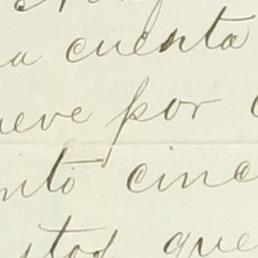 a cuenta
ueve por
nto cinc
stos que